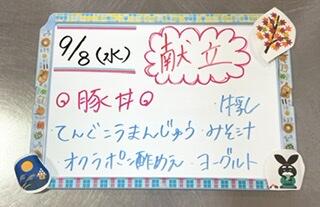 9/8(水) 献立
◎豚丼◎ ・牛乳
・てんごこうまんじゅう・みそ汁
・オクラポン酢めえ・ヨーグルト